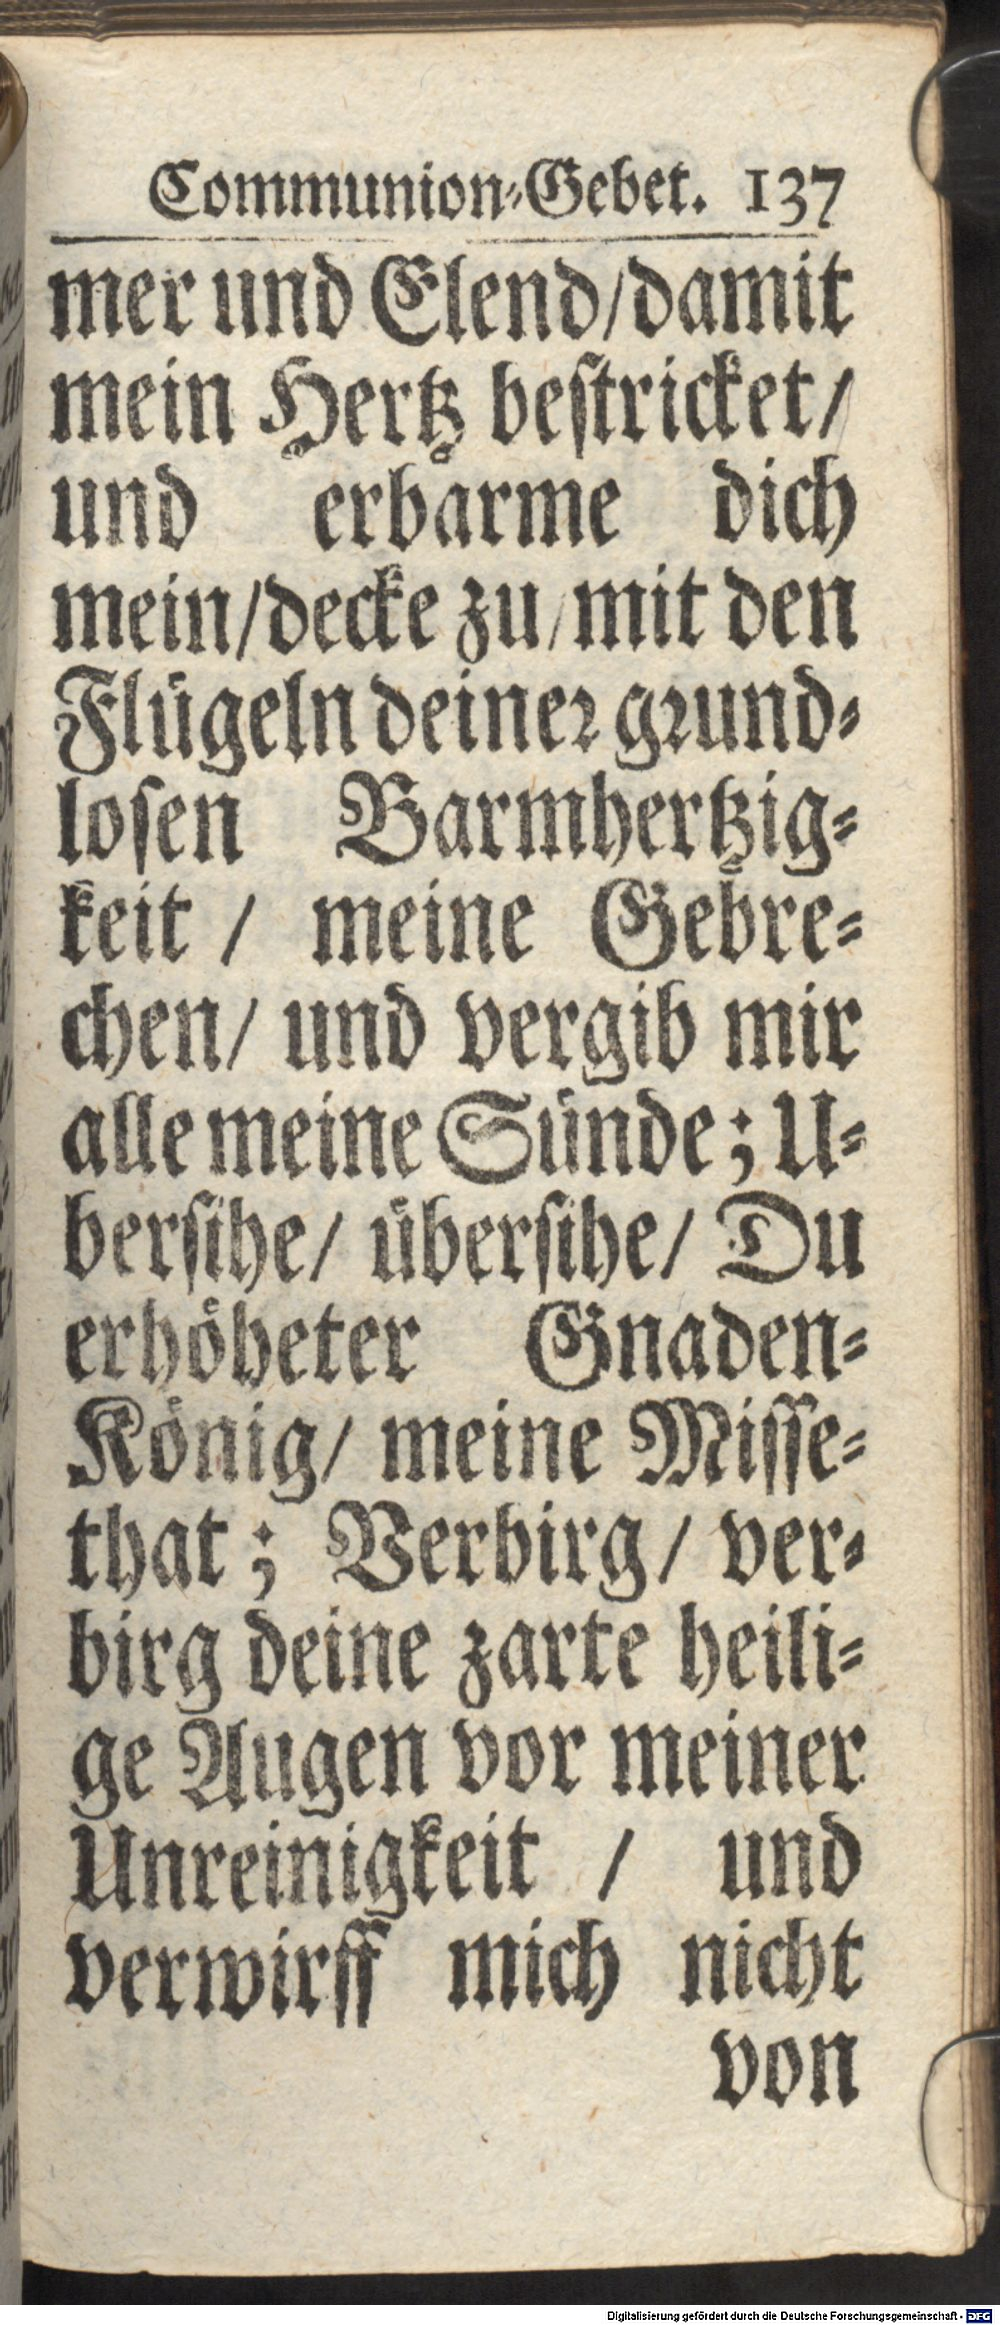 Communion-Gebet. 137
mer und Elend/damit
mein Hertz bestricket/
und erbarme dich
mein/decke zu/mit den
Flügeln deiner grund-
losen Barmhertzig-
keit / meine Gebre-
chen/ und vergib mir
alle meine Sünde; U-
bersihe/ übersihe/ Du
erhöheter Gnaden-
König/ meine Misse-
that; Verbirg/ ver-
birg deine zarte heili-
ge Augen vor meiner
Unreinigkeit / und
verwirff mich nicht
von
Digitalisierung gefördert durch die Deutsche Forschungsgemeinschaft - DFG